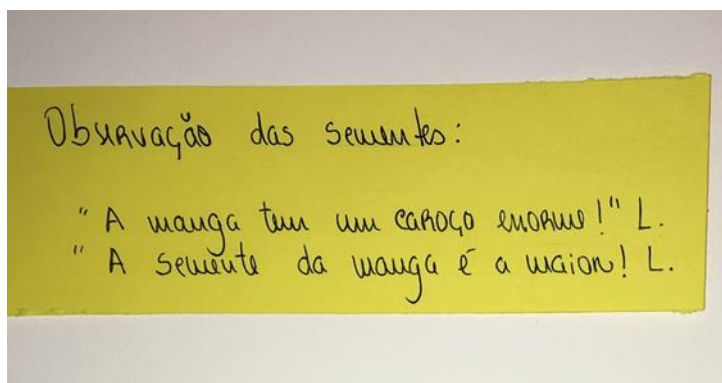 Observação das sementes:
"A manga tem um caroço enorme!" L.
"A semente da manga é a maior! L.